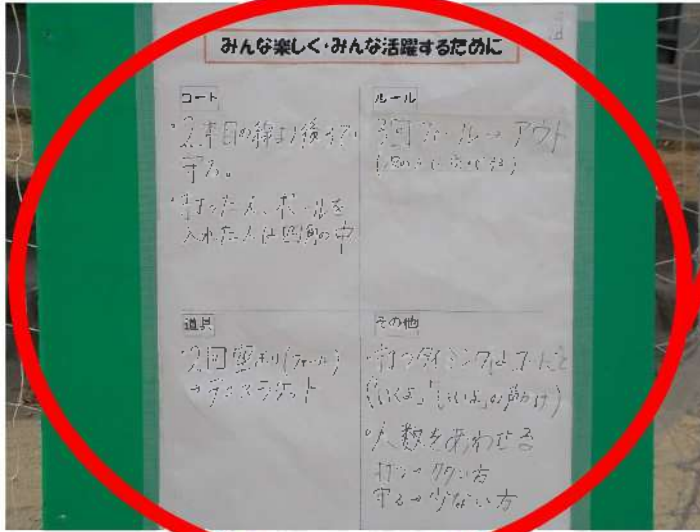 みんな楽しく・みんな活躍するために
コート
・2本目の線より後ろで
守る。
・打った人、ボールを
入れた人は四角の中
ルール
3回ファール→アウト
道具
・2回空ぶり(ファール)
→テニスラケット
その他
・打つタイミングは
(「いくよ」「いいよ」の声かけ)
・人数を合わせる
打つ→ 方
守る→少ない方